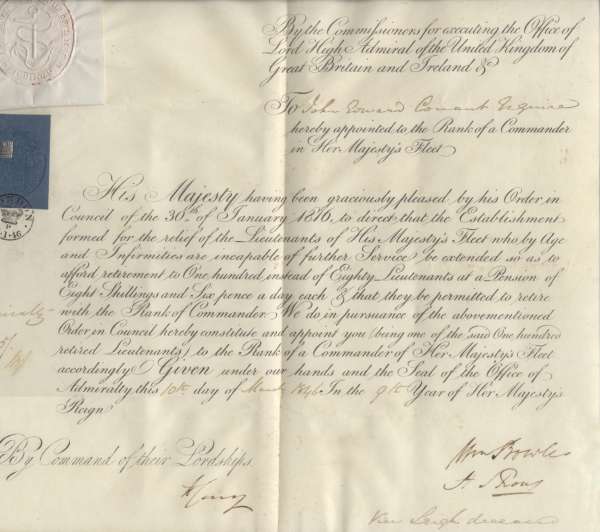 By the Commissioners for executing the Office of
Lord High Admiral of the United Kingdom of
Great Britain and Ireland &
To John Edward Conant Esquire
hereby appointed to the Rank of a Commander
in Her Majesty's Fleet
His Majesty having been graciously pleased by his Order in
Council of the 30th of January 1816, to direct that the Establishment
formed for the relief of the Lieutenants of His Majesty's Fleet who by Age
and Infirmities are incapable of further Service be extended so as to
afford retirement to One hundred, instead of Eighty Lieutenants at a Pension of
Eight Shillings and Six pence a day each & that they be permitted to retire
with the Rank of Commander. We do in pursuance of the abovementioned
Order in Council hereby constitute and appoint you (being one of the said One hundred
retired Lieutenants) to the Rank of a Commander of Her Majesty's Fleet
accordingly Given under our hands and the Seal of the Office of
Admiralty this 10th day of March 1846 In the 9th Year of Her Majesty's
Reign
By Command of their Lordships
Wm Bowles
H J Rous
Vice Leigh deceased